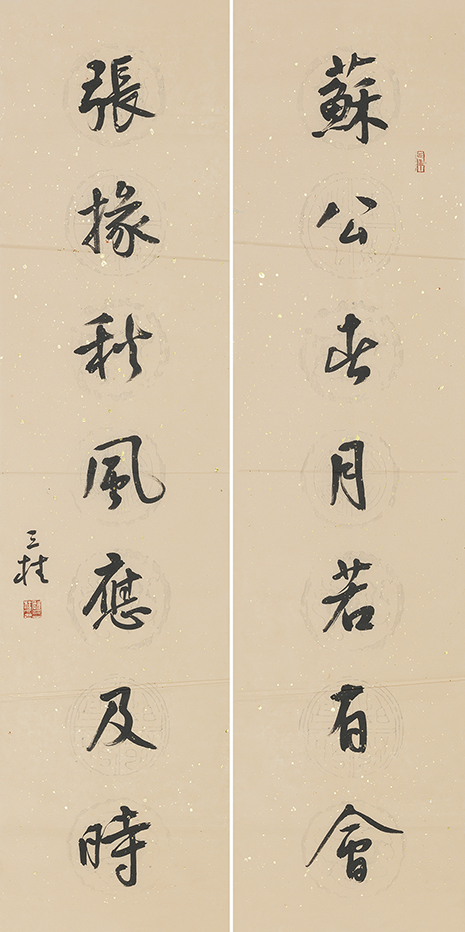 蘇公春月若有會
張掾秋風應及時
三桂